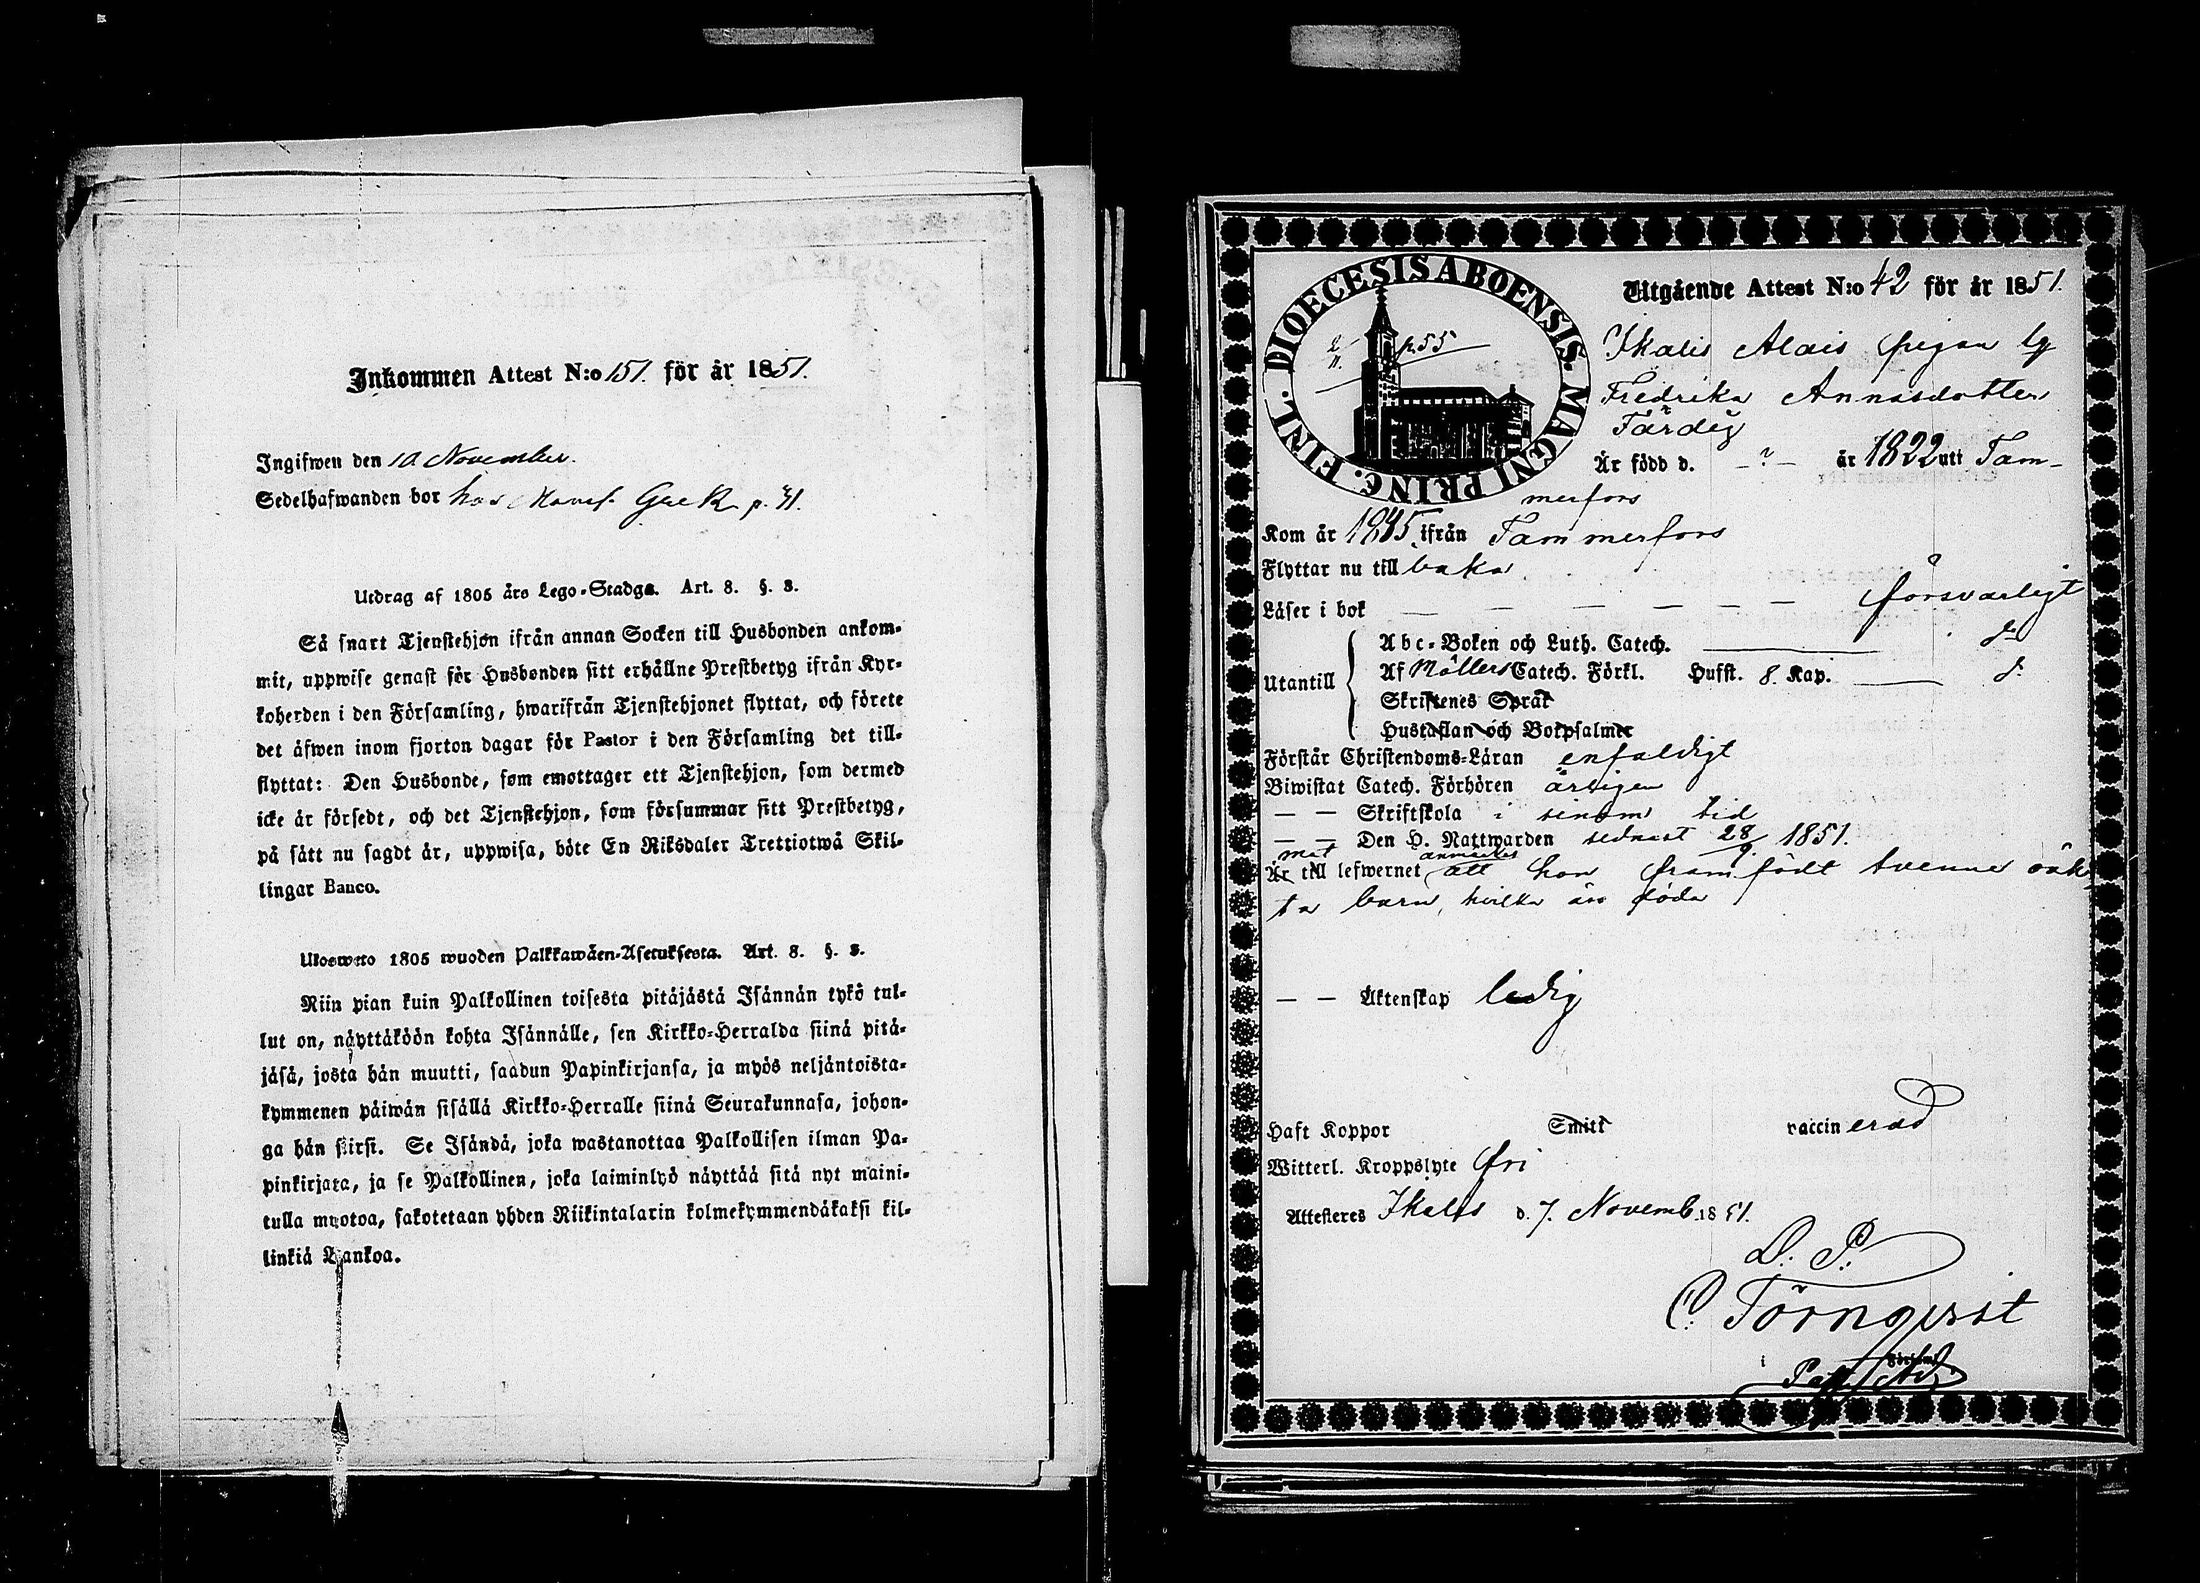 Inkommen Attest N:o 151. för år 1851.
Ingifwen den 10 November.
Sedelhafwanden bor hos p. 41.
Utdrag af 1805 års Lego-Stadga. Art. 8. §. 3.
Så snart Tjenstehjon ifrån annan Socken till Husbonden ankom-
mit, uppwise genast för Husbonden sitt erhållne Prestbetyg ifrån Kyr-
koherden i den Församling, hwarifrån Tjenstehjonet flyttat, och förete
det äfwen inom fjorton dagar för Pastor i den Församling det till-
flyttat: Den Husbonde, som emottager ett Tjenstehjon, som dermed
icke är försedt, och det Tjenstehjon, som försummar sitt Prestbetyg,
på sätt nu sagdt är, uppwisa, böte En Riksdaler Trettiotwå Skil-
lingar Banco.
Uloswetto 1805 wuoden Palkkawäen-Asetuksesta. Art. 8. §. 3.
Niin pian kuin Palkollinen toisesta pitäjästä Isännän tykö tul-
lut on, näyttäköön kohta Isännälle, sen Kirkko-Herralda siinä pitä-
jäsä, josta hän muutti, saadun Papinkirjansa, ja myös neljäntoista-
kymmenen päiwän sisällä Kirkko-Herralle siinä Seurakunnasa, johon-
ga hän siirsi. Se Isändä, joka wastanottaa Palkollisen ilman Pa-
pinkirjata, ja se Palkollinen, joka laiminlyö näyttää sitä nyt maini-
tulla muotoa, sakotetaan yhden Riikintalarin kolmekymmendäkaksi kil-
linkiä Bankoa.
DIOECESIS ABOENSIS. MAGNI PRINC. FINL.
2/11. p. 55
Utgående Attest N:o 42 för år 1851.
Ikalis Alais pigan
Fredrika Annasdotter
Färdig
Är född d. —?— år 1822 uti Tam-
merfors
Kom år 1845 ifrån Tammerfors
Flyttar nu till baka
Läser i bok — — — — — — försvarligt
Abc-Boken och Luth. Catech. d:o
Utantill Af Möllers Catech. Förkl. Hufst. 8. Kap. d:o
Skriftenes Språk
Hustaflan och Botpsalmer
Förstår Christendoms-Läran enfaldigt
Biwistat Catech. Förhören årligen
— — Skriftskola i sinom tid
— — Den H. Nattwarden sednast 28/9. 1851.
mot anmärkes
Är till lefwernet att hon framfödt tvenne oäk-
ta barn, hvilka äro döda
— — Äktenskap ledig
Haft Koppor Smitt vaccinerad
Witterl. Kroppslyte fri
Attesteres Ikalis d. 7. Novemb. 1851.
D. P.
C. Törnqvist
i Församl